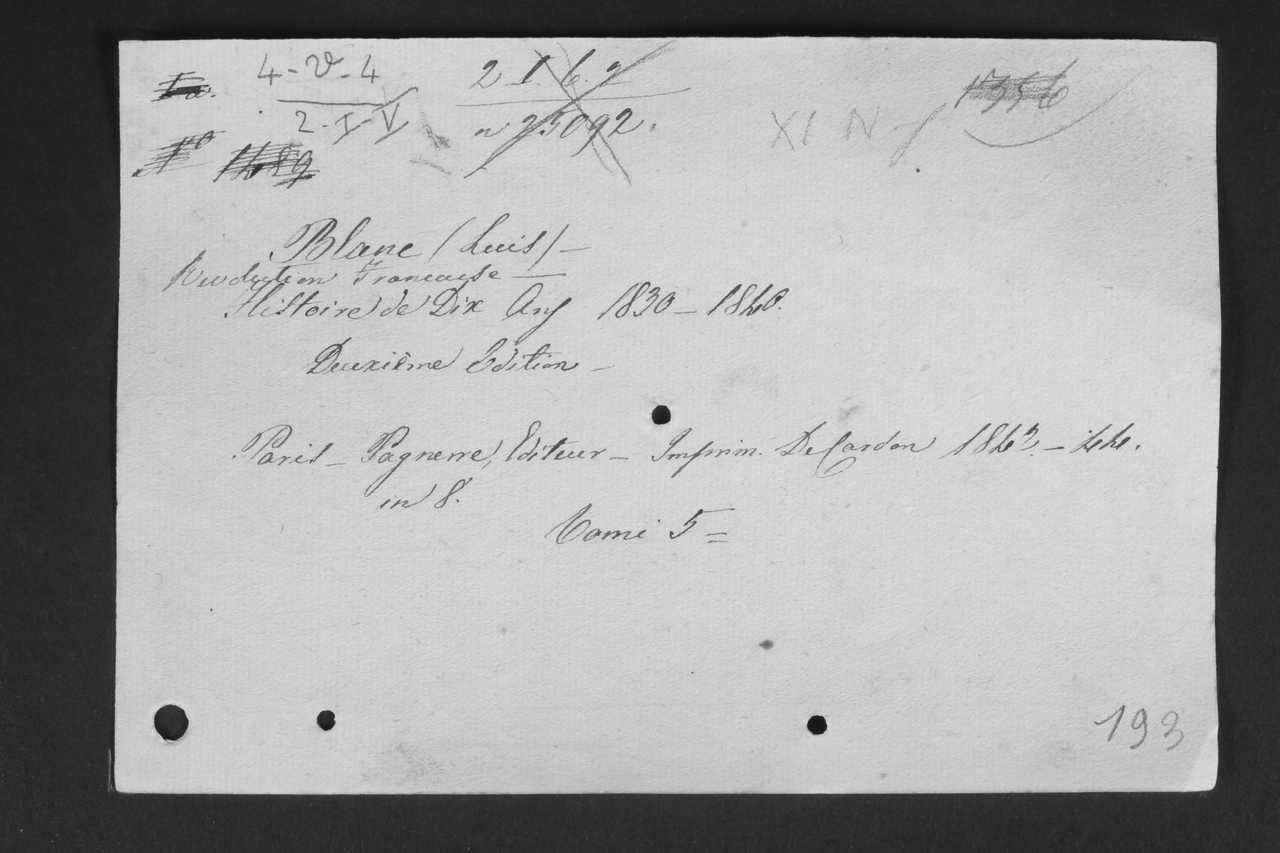 4-V-4
2-I-V
2 I. 6. 2
n 25092.
XI N
1489
Blanc (Luis) —
Revolution Francaise —
Histoire de Dix Ans 1830 — 1840.
Deuxième Edition —
Paris — Pagnerre, Editeur — Imprim. De Cardon 1843. — 44.
in 8.
Tomi 5 =
193